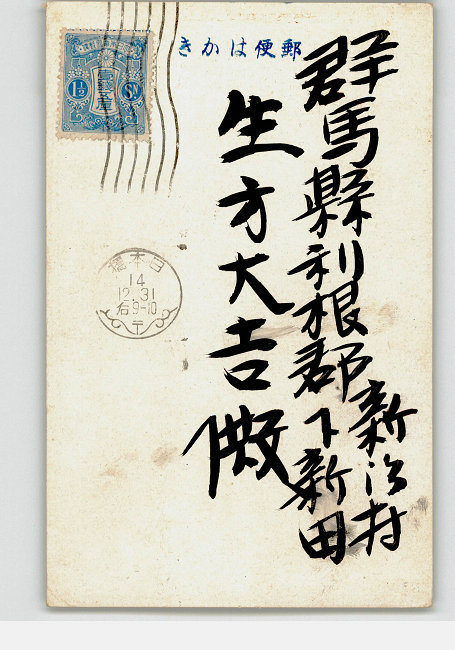 郵便はかき
群馬縣利根郡新治村
下新田
生方大吉殿
1½ Sn
日本橋
14
12.31
后9-10
〒